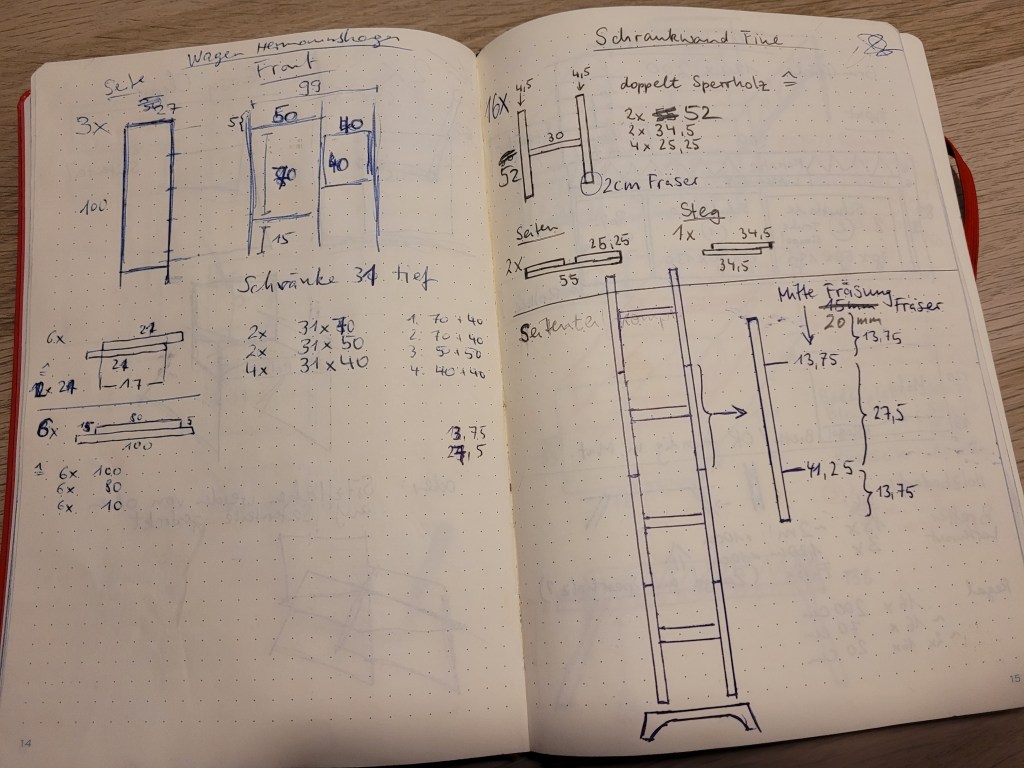 Wagen Hermannshagen
Seite
Front
27
99
3x
50
40
55
70
40
100
15
Schränke 31 tief
6x
27
27
17
12x 27
2x 31 x 70
2x 31 x 50
4x 31 x 40
1. 70 + 40
2. 70 + 40
3. 50 + 50
4. 40 + 40
6x
15 80 5
100
6x 100
6x 80
6x 10
13,75
27,5
14
Schrankwand Fine
16x
4,5
4,5
doppelt Sperrholz ≙
2x 52
2x 34,5
4x 25,25
30
52
2cm Fräser
Seiten
2x
25,25
55
Steg
1x
34,5
34,5
Mitte Fräsung
Fräser
20 mm
13,75
13,75
27,5
41,25
13,75
15